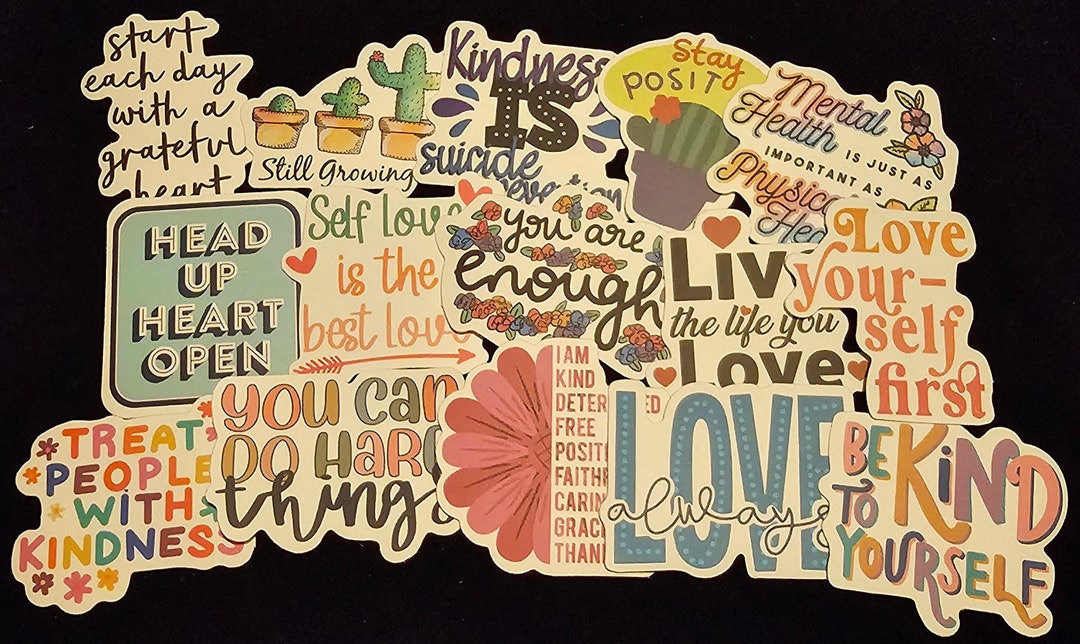 start
each day
with a
grateful
heart
Still Growing
Kindness
IS
suicide
Stay
POSIT
Mental
Health
IS JUST AS
IMPORTANT AS
Physic
Hea
HEAD
UP
HEART
OPEN
Self love
is the
best love
you are
enough
Liv
the life you
Love
Love
your-
self
first
TREAT
PEOPLE
WITH
KINDNESS
YOU CAN
DO HAR
things
I AM
KIND
DETER ED
FREE
POSITI
FAITHF
CARIN
GRAC
THAN
LOVE
always
BE KIND
TO
YOURSELF